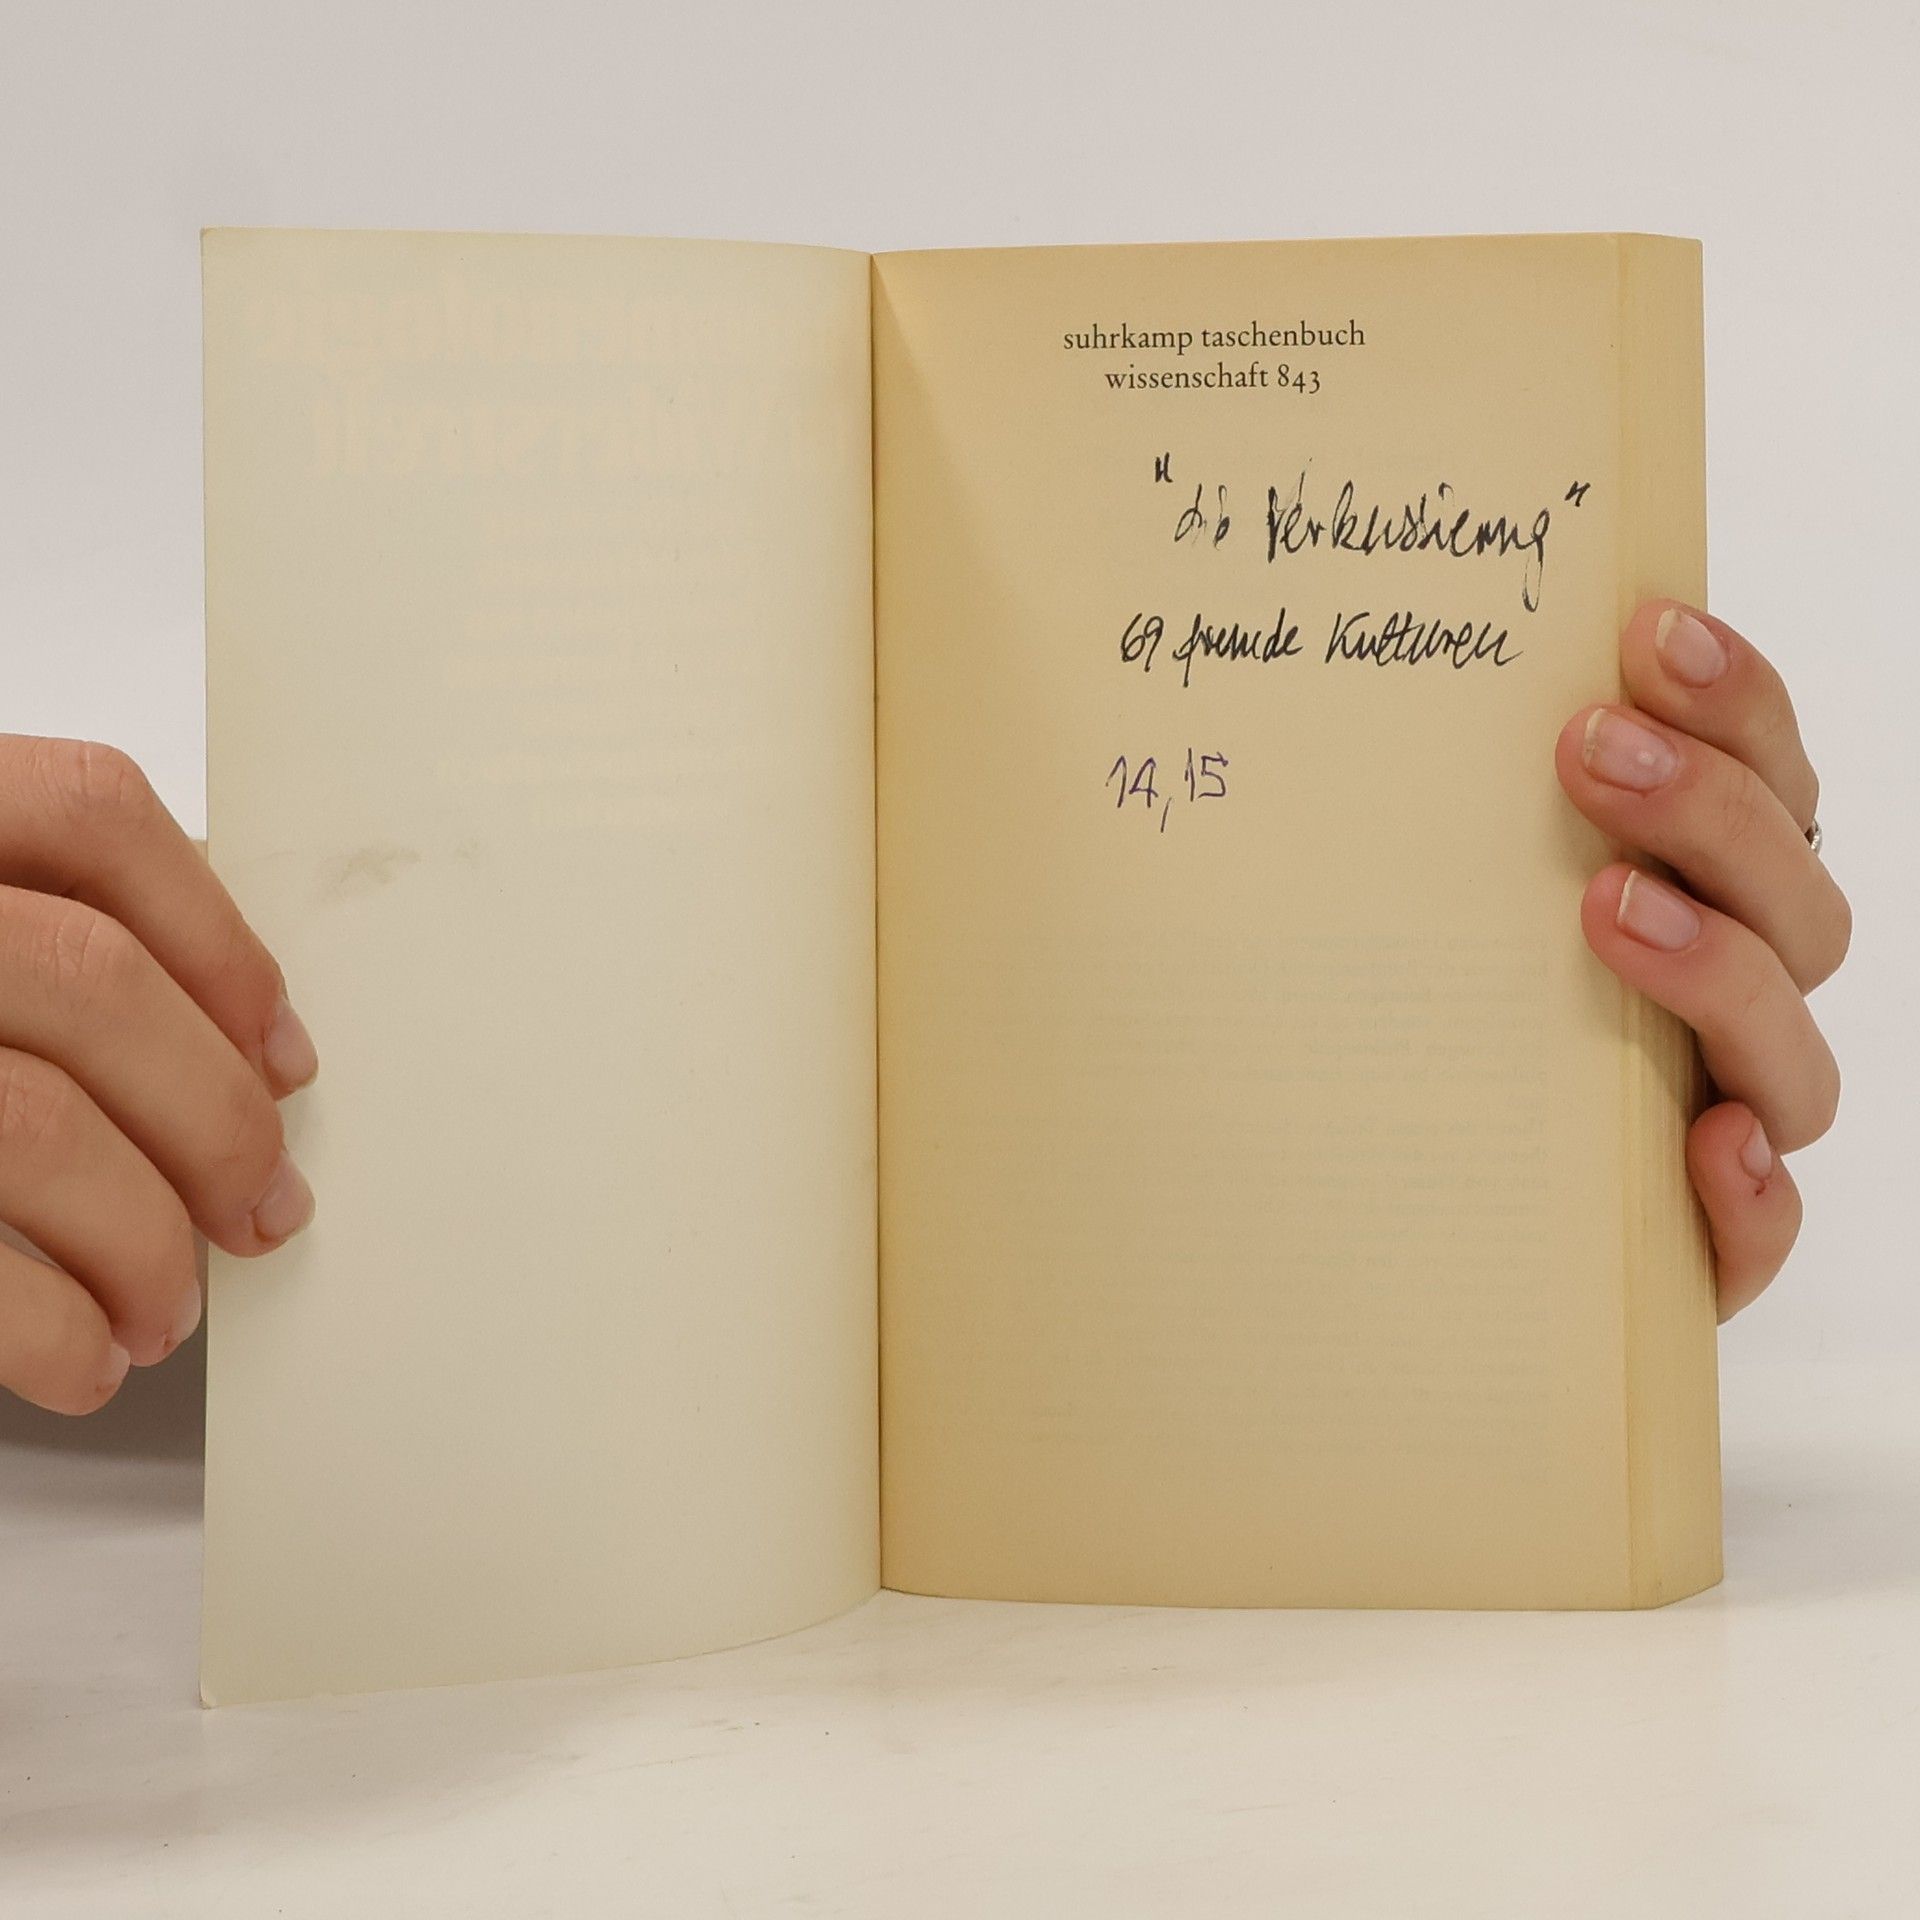 suhrkamp taschenbuch
wissenschaft 843
"die Verkussierung"
69 fremde Kulturen
14, 15